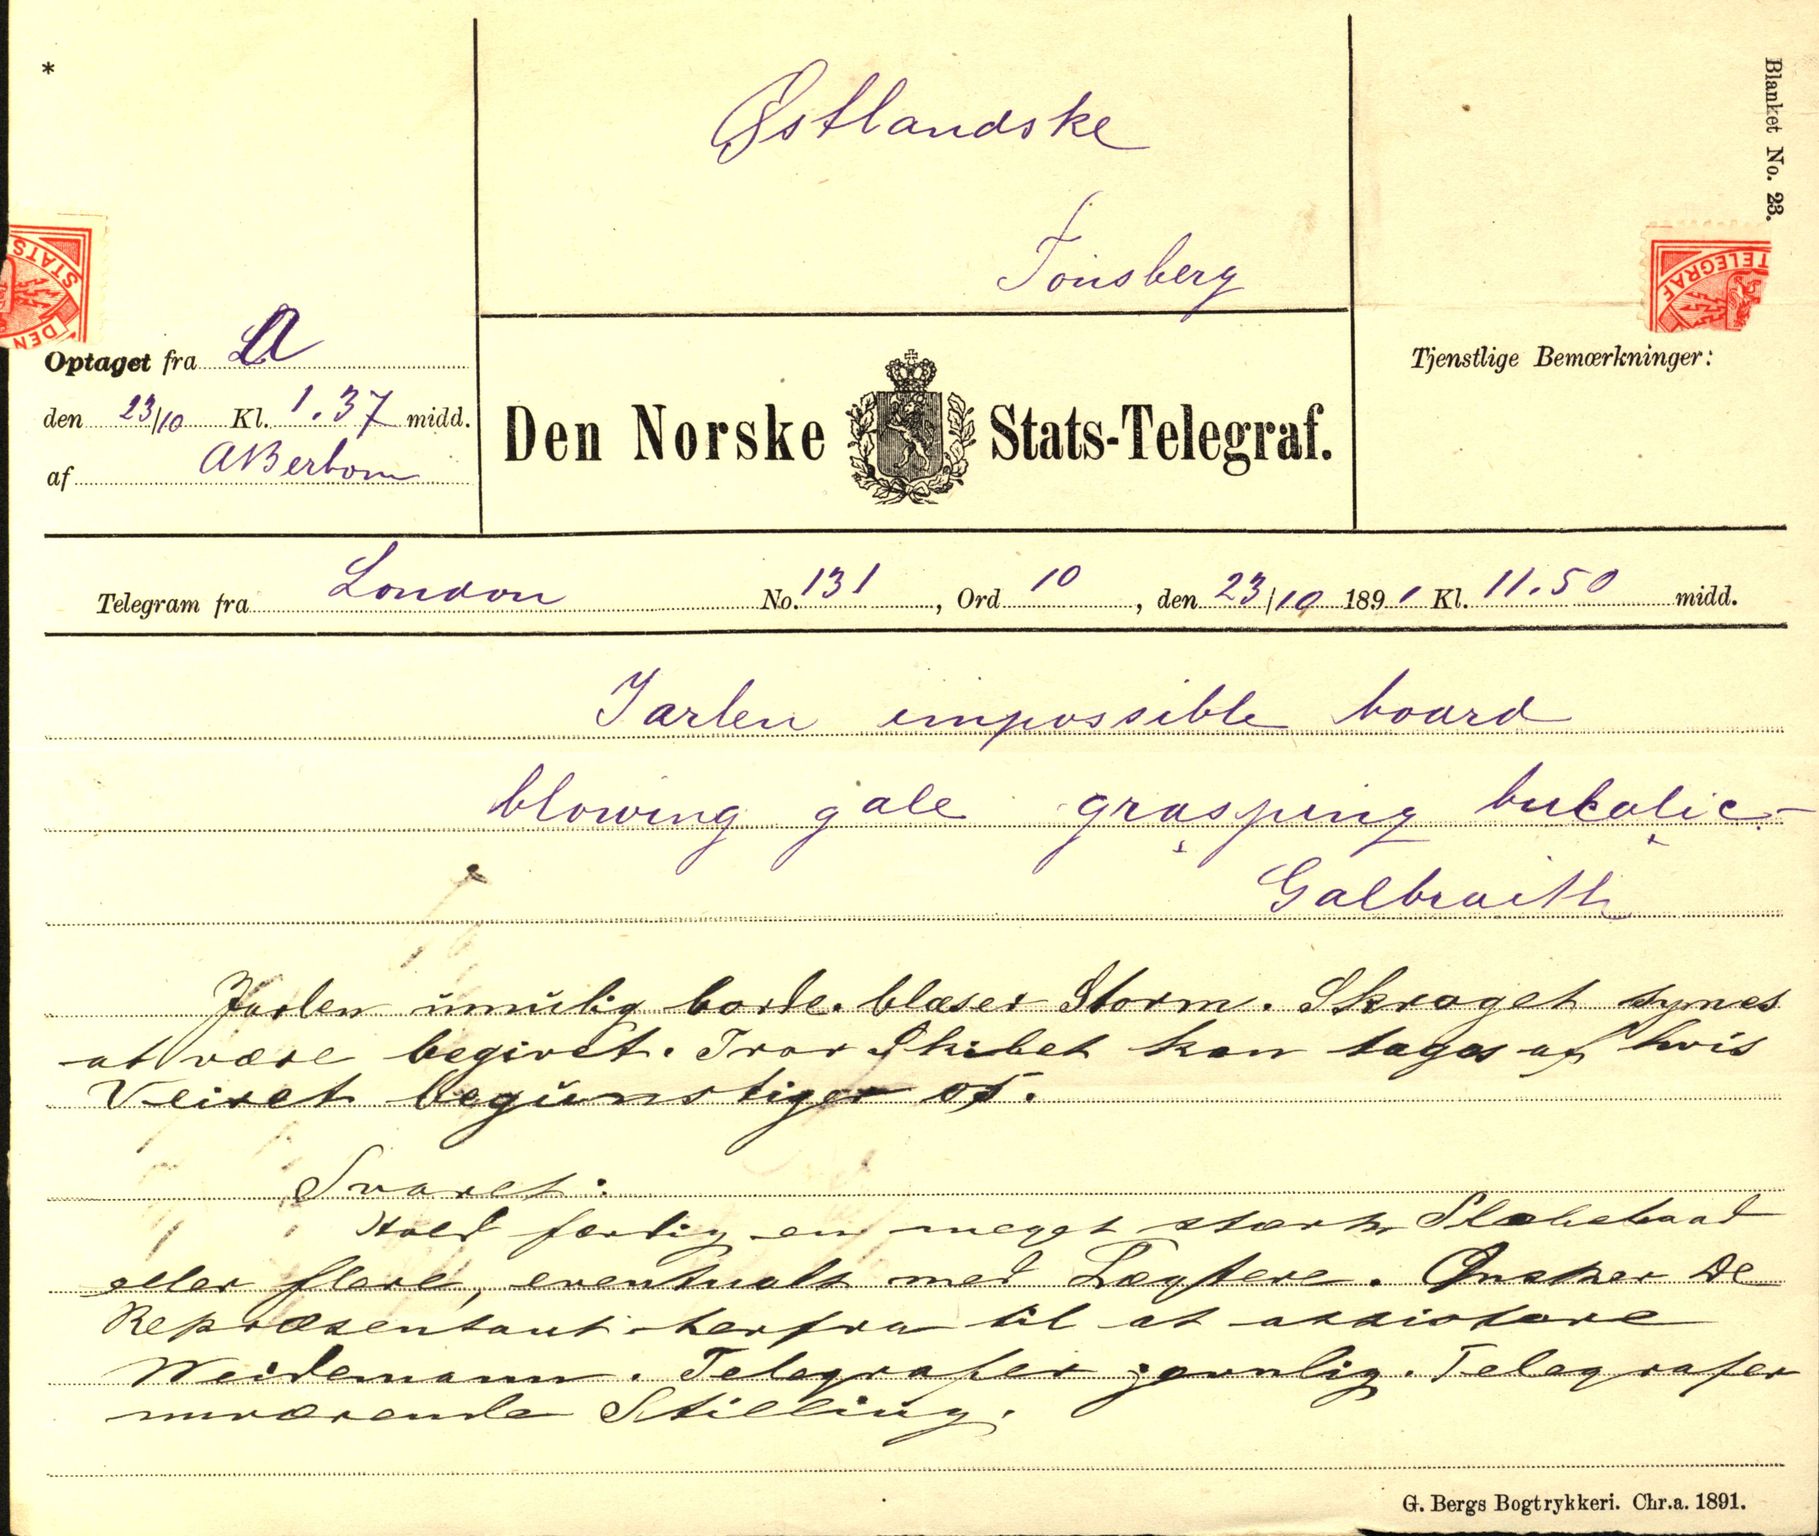 *
Blanket No. 23.
Østlandske
Tønsberg
DEN
STATS
TELEGRAF
Optaget fra LA
den 23/10 Kl. 1.37 midd.
af ABerbom
Den Norske Stats-Telegraf.
Tjenstlige Bemærkninger:
Telegram fra London No. 131, Ord 10, den 23/10 1891 Kl. 11.50 midd.
Jarlen impossible board
blowing gale grasping bucolic -
Galbraith
Jarlen umulig borde. blæser Storm. Skroget synes
at være begivet. Tror Skibet kan tages af hvis
Veiret begunstiger os.
Svaret:
Hold færdig en meget stærk Slæbebaad
eller flere, eventuelt med Lægtere. Ønsker De
Repræsentant herfra til at assistere
Weidemann. Telegrafer jevnlig. Telegrafer
nuværende Stilling.
G. Bergs Bogtrykkeri. Chr.a. 1891.